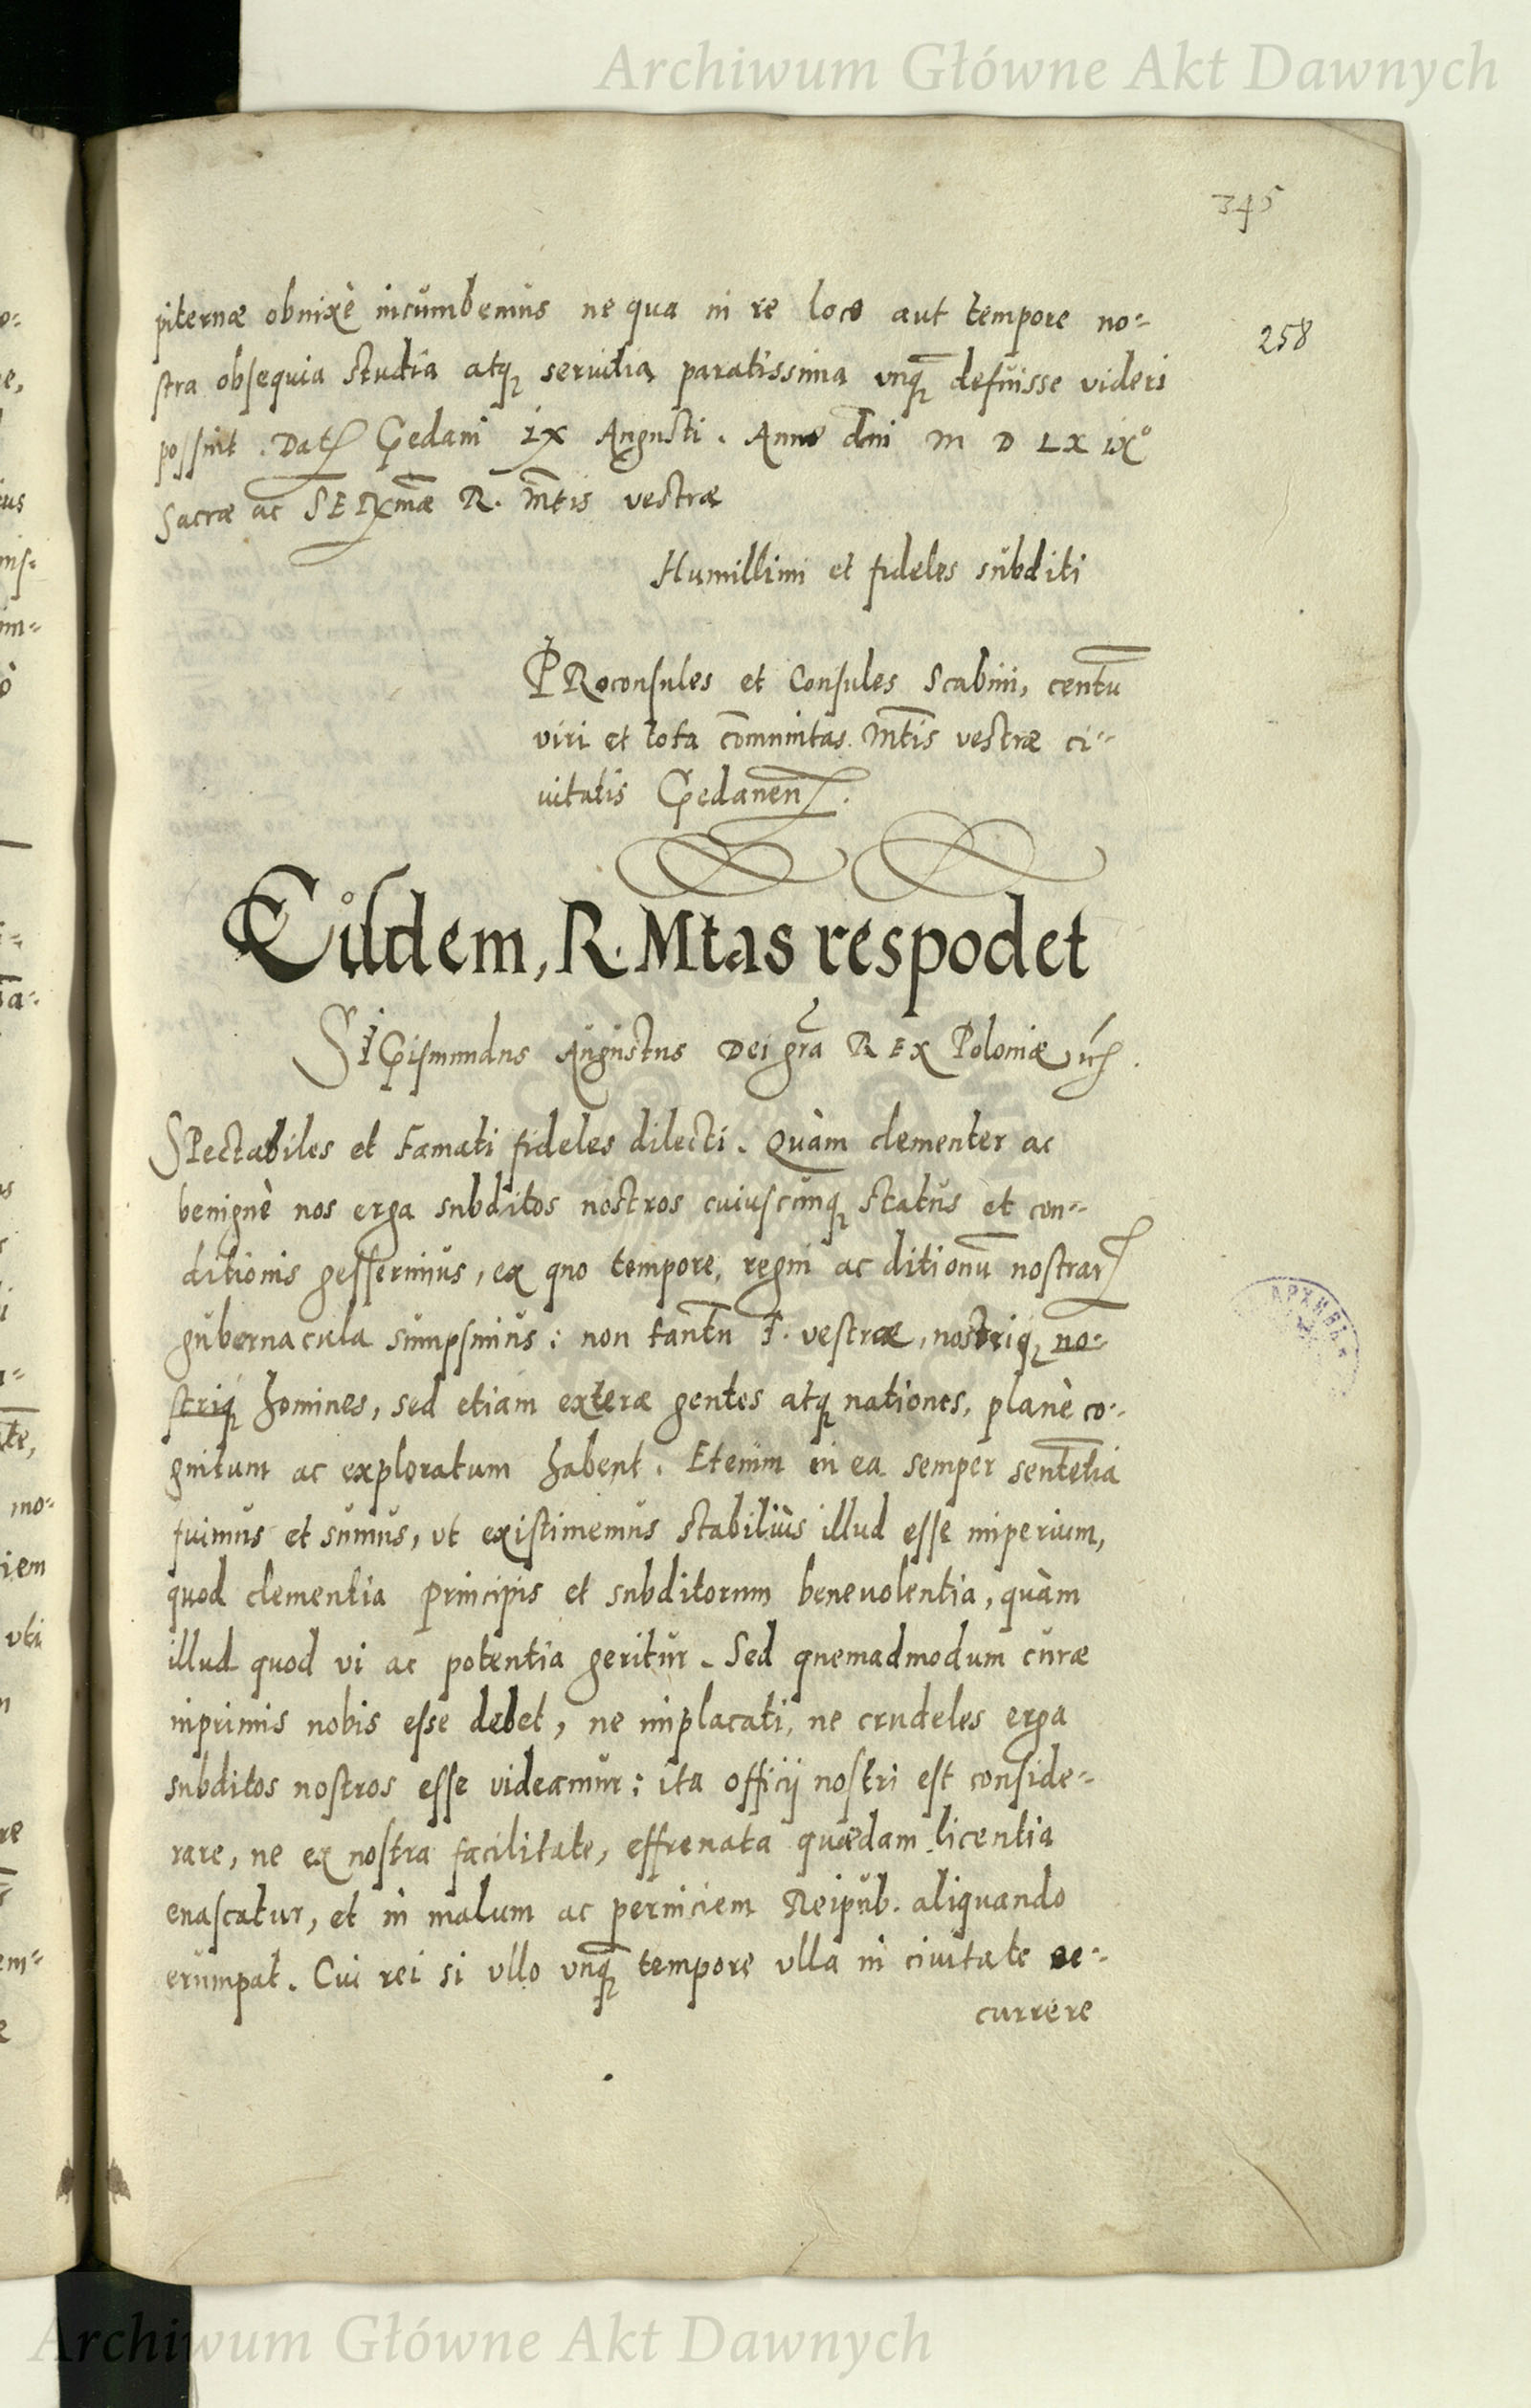 Archiwum Główne Akt Dawnych
345
piternæ obnixè incumbemus ne qua in re loco aut tempore no=
258
stra obsequia studia atq̃ seruitia paratissima vnq̃ defuisse videri
possint. Dat Gedani IX Augusti. Anno dni M D LX IX°
Sacræ ac SERmæ R. Mtis vestræ
Humillimi et fideles subditi
PRoconsules et Consules Scabini, centū
viri et tota cōmunitas Mtis vestræ ci=
uitatis Gedanen.
Eisdem, R. Mtas respodet
SIGismundus Augustus Dei gra REx Poloniæ etc.
SPectabiles et Famati fideles dilecti. Quàm clementer ac
benignè nos erga subditos nostros cuiuscunq̃ status et con=
ditionis gesserimus, ex quo tempore, regni ac ditionū nostrar
gubernacula sumpsimus: non tantū F. vestræ, nostriq̃ no=
striq̃ homines, sed etiam exteræ gentes atq̃ nationes, planè co=
gnitum ac exploratum habent. Etenim in ea semper sentētia
fuimus et sumus, vt existimemus stabiliùs illud esse imperium,
quod clementia principis et subditorum beneuolentia, quàm
illud quod vi ac potentia geritur. Sed quemadmodum curæ
inprimis nobis esse debet, ne implacati, ne crudeles erga
subditos nostros esse videamur: ita officij nostri est conside=
rare, ne ex nostra facilitate, effrenata quædam licentia
enascatur, et in malum ac perniciem Reipub. aliquando
erumpat. Cui rei si vllo vnq̃ tempore vlla in ciuitate oc=
currere
Archiwum Główne Akt Dawnych